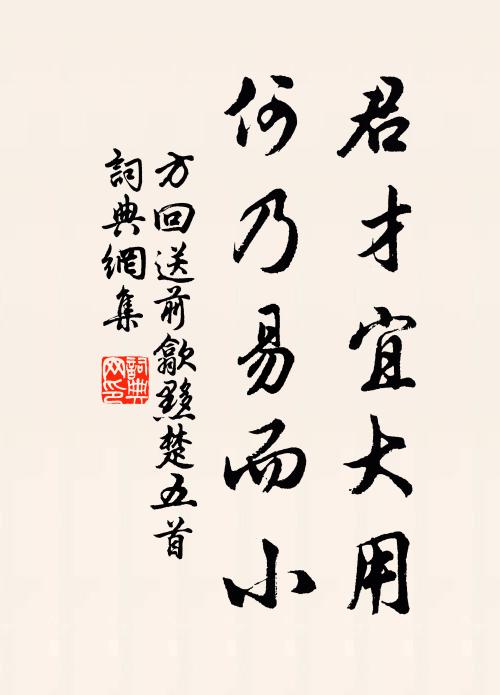 君才宜大用
何乃易而小
方回送前歙黟楚五首
詞典網集
詞典
网印